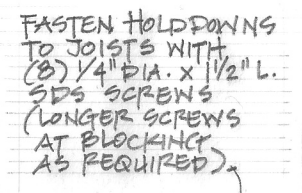 FASTEN HOLDDOWNS
TO JOISTS WITH
(8) 1/4" DIA. X 1 1/2" L.
SDS SCREWS
(LONGER SCREWS
AT BLOCKING
AS REQUIRED).